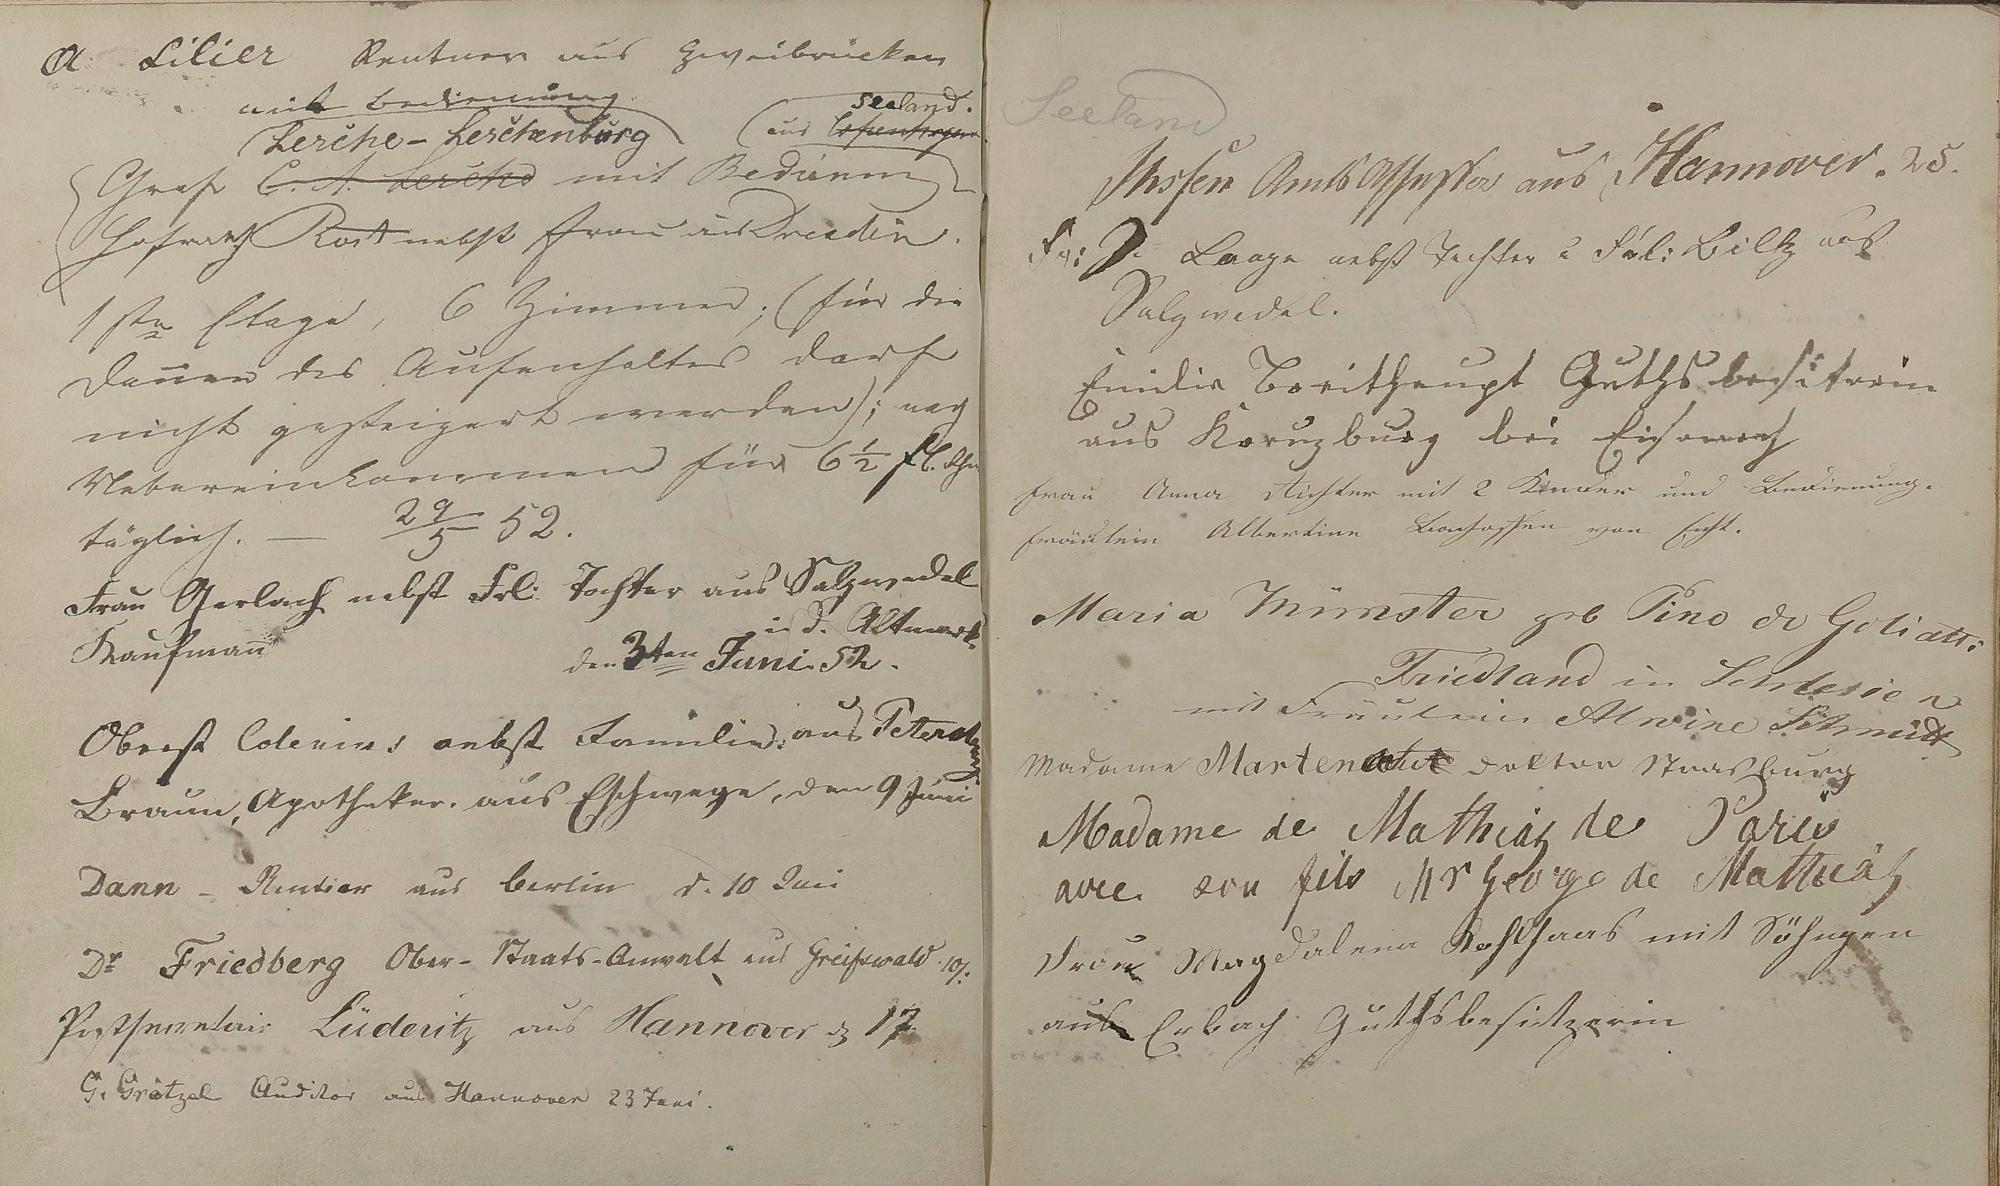 A Lilier Rentner aus Zweibrücken
mit Bedienung
Seeland.
Lerche-Lerchenburg
aus Copenhagen
Graf C. A. Lerche mit Bedienung
Hofrath Rost nebst Frau aus Dresden.
1ste Etage, 6 Zimmer; (für die
Dauer des Aufenthaltes darf
nicht gesteigert werden); nach
Uebereinkommen für 6 1/2 fl.
täglich. — 29/5 52.
Frau Gerlach nebst Frl: Tochter aus Salzwedel
in d. Altmark
Kaufmann
den 3ten Juni 52.
Oberst nebst Familie: aus Petersburg
Braun, Apotheker. aus Eschwege, den 9 Juni
Dann - Rentier aus Berlin d. 10 Juni
Dr Friedberg Ober-Staats-Anwalt aus Greifswald 10/.
Postsecretair Lüderitz aus Hannover 17
G. Grätzel Auditor aus Hannover 23 Juni.
Seeland
Amts Assessor aus Hannover. 25.
Fr: D. Laage nebst Tochter u Frl: Biltz aus
Salzwedel.
Emilie Breithaupt Guthsbesitzerin
aus Kreuzburg bei Eisenach
Frau Anna Richter mit 2 Kinder und Bedienung.
Fräulein Albertine von
Maria Münster geb Pino de Goliatti
Friedland in Schlesien
mit Fräulein Alwine Schmidt
Madame Marten Doktor Strassburg
Madame de Mathiäs de Paris
avec son fils Mr George de Mathiäs
Frau Magdalena Kohlhaas mit Söhngen
aus Erbach Guthsbesitzerin